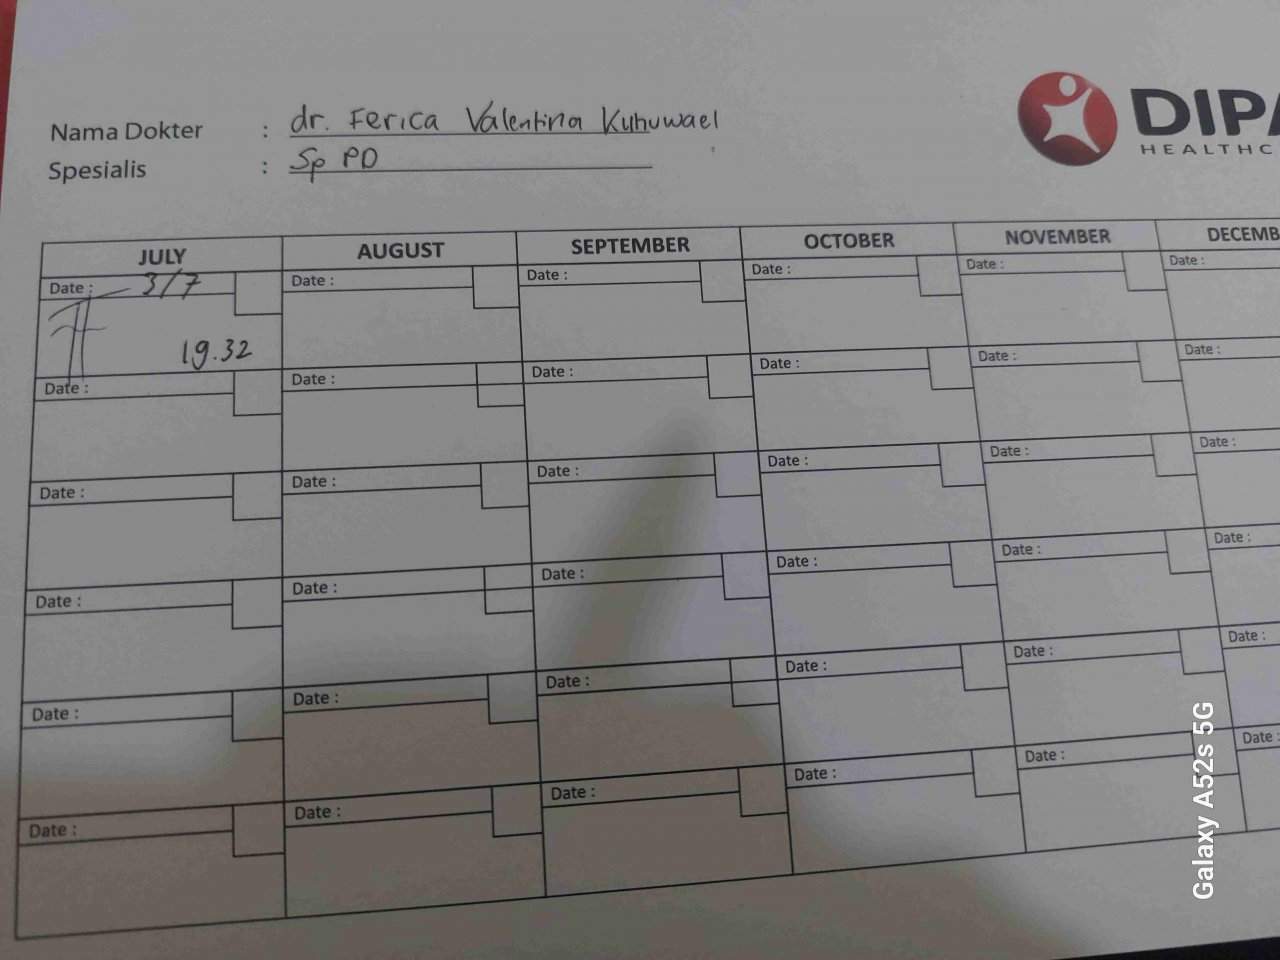 Nama Dokter : dr. Ferica Valentina Kuhuwael
Spesialis : Sp PD
DIPA
HEALTHC
JULY AUGUST SEPTEMBER OCTOBER NOVEMBER DECEMB
Date : 3/7 Date : Date : Date : Date : Date :
19.32
Date : Date : Date : Date : Date : Date :
Date : Date : Date : Date : Date : Date :
Date : Date : Date : Date : Date : Date :
Date : Date : Date : Date : Date : Date :
Date : Date : Date : Date : Date : Date :
Galaxy A52s 5G